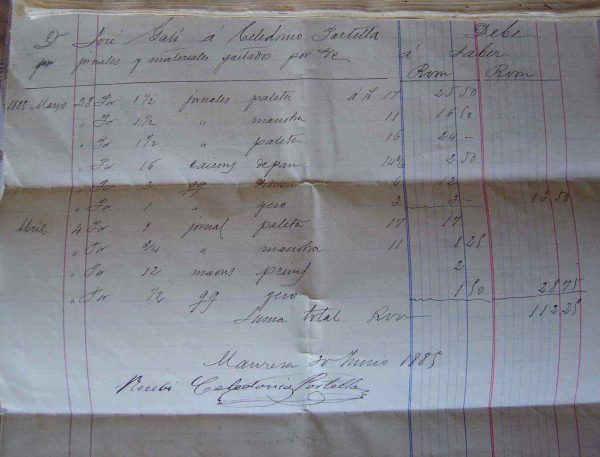 Dn José Galí a Celedonio Portella Debe
por jornales y materiales gastados por á Saber
Rvon Rvon
1885 Mayo 28 Por 1 1/2 jornales paleta á 17 25 50
" Por 1 1/2 " manobra 11 16 50
" Por 1 1/2 " paleta 16 24 -
" Por 16 cairons de pau 2 50
" Por qq 6 12
" Por 1 " yeso 3 3 -
Abril 4 Por 1 jornal paleta 17 17
" Por 3/4 " manobra 11 8 25
" Por 12 maons prims 2
" Por 1/2 qq yeso 1 50 28 75
Suma total Rvon 112 25
Manresa 30 Junio 1885
Recibí Celedonio Portella